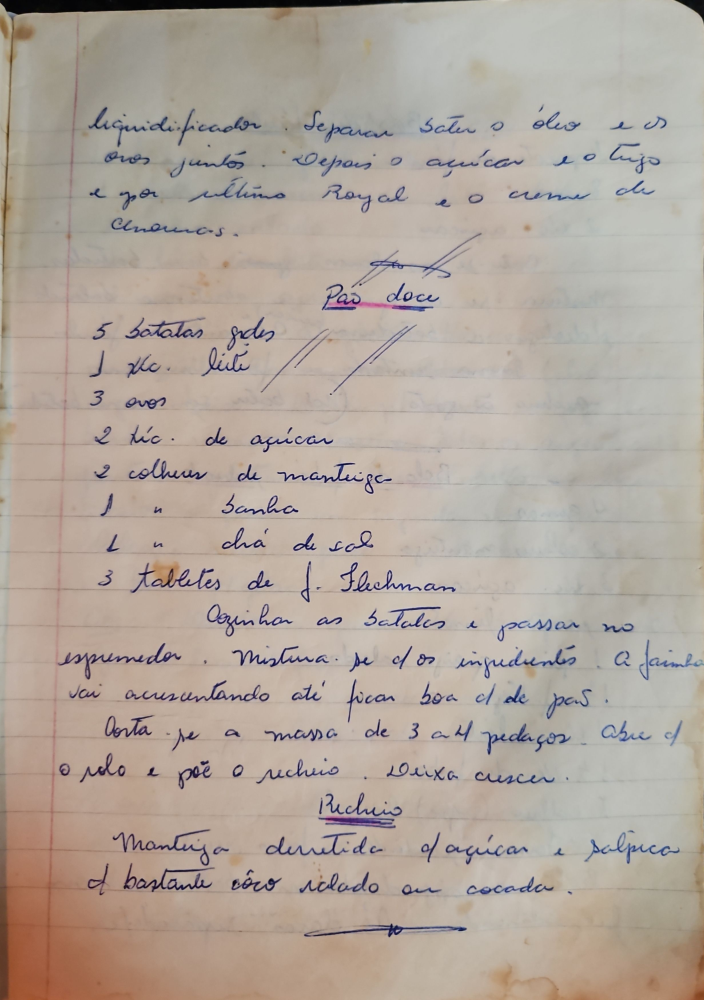 liquidificador. Separar bater o óleo e os
ovos juntos. Depois o açúcar e o trigo
e por último Royal e o creme de
cenouras.
Pão doce
5 batatas gdes
1 xic. leite
3 ovos
2 xic. de açúcar
2 colheres de manteiga
1 " banha
1 " chá de sal
3 tabletes de f. Flechman
Cozinhar as batatas e passar no
espremedor. Mistura-se c/ os ingredientes. A farinha
vai acrescentando até ficar boa c/ de pão.
Corta-se a massa de 3 a 4 pedaços. Abre c/
o rolo e põe o recheio. Deixa crescer.
Recheio
Manteiga derretida c/ açúcar e salpica
c/ bastante côco ralado ou cocada.